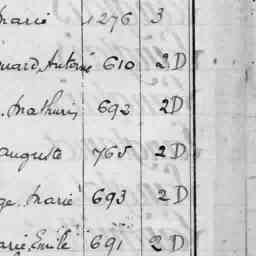 Marie 1276 3
Antoine 610 2D
Mathurin 692 2D
auguste 765 2D
ge. Marie 693 2D
arie, Emile 691 2D